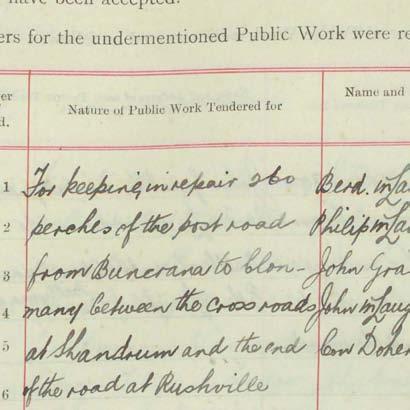 have been accepted.
ers for the undermentioned Public Work were re
er
d.
Nature of Public Work Tendered for
Name and
1 For keeping in repair 260 Bernd. McLa
2 perches of the post road Philip McLa
3 from Buncrana to Clon- John Gra
4 many between the cross roads John McLaug
5 at Shandrum and the end Con Doher
6 of the road at Rushville